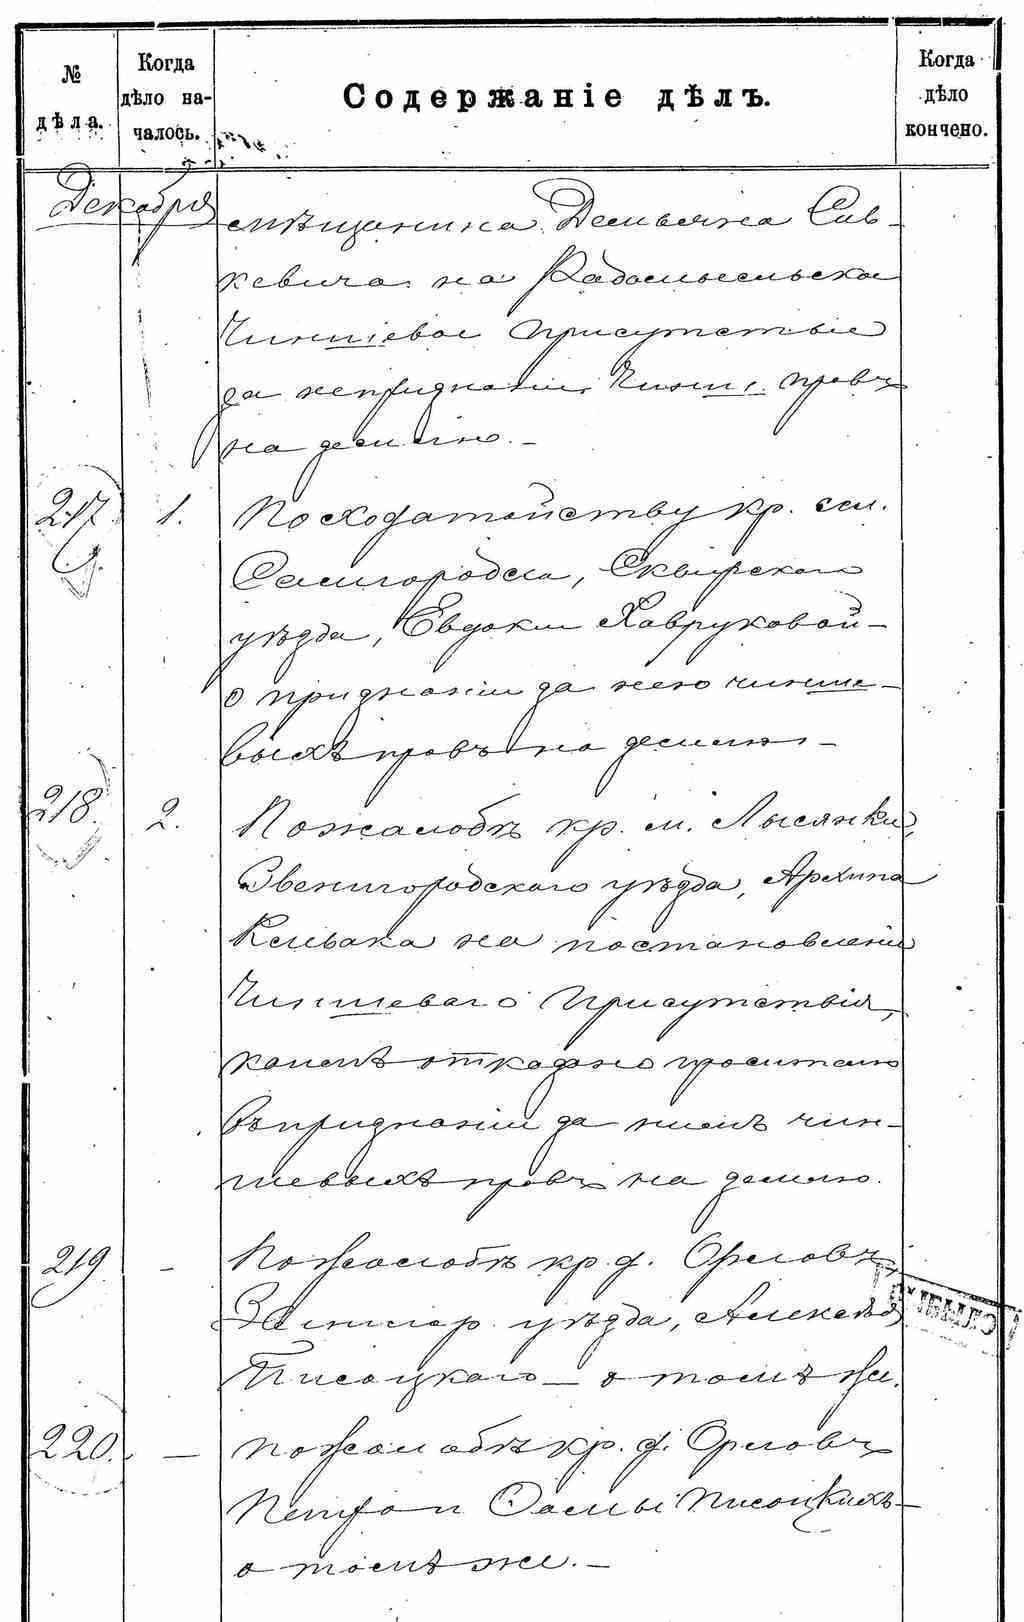 № дѣла.
Когда дѣло на-
чалось.
Содержаніе дѣлъ.
Когда дѣло кончено.
Декабря
мѣщанина Демьяна Сав-
кевича на Радомысльское
Чиншевое Присутствіе
за непризнаніе Чинш. правъ
на землю. —
217 1. По ходатайству кр. с.
Самгородка, Сквирскаго
уѣзда, Евдокіи Хавруковой —
о признаніи за нею чинше-
выхъ правъ на землю —
218. 2. По жалобѣ кр. м. Лысянки,
Звенигородскаго уѣзда, Архипа
на постановленіе
Чиншеваго Присутствія,
коимъ отказано просителю
въ признаніи за нимъ чин-
шевыхъ правъ на землю.
219 — По жалобѣ кр. д. Орловъ,
уѣзда, Алексѣя
Писоцкаго — о томъ же.
220. — По жалобѣ кр. д. Орловъ
Петра и Писоцкихъ —
о томъ же. —